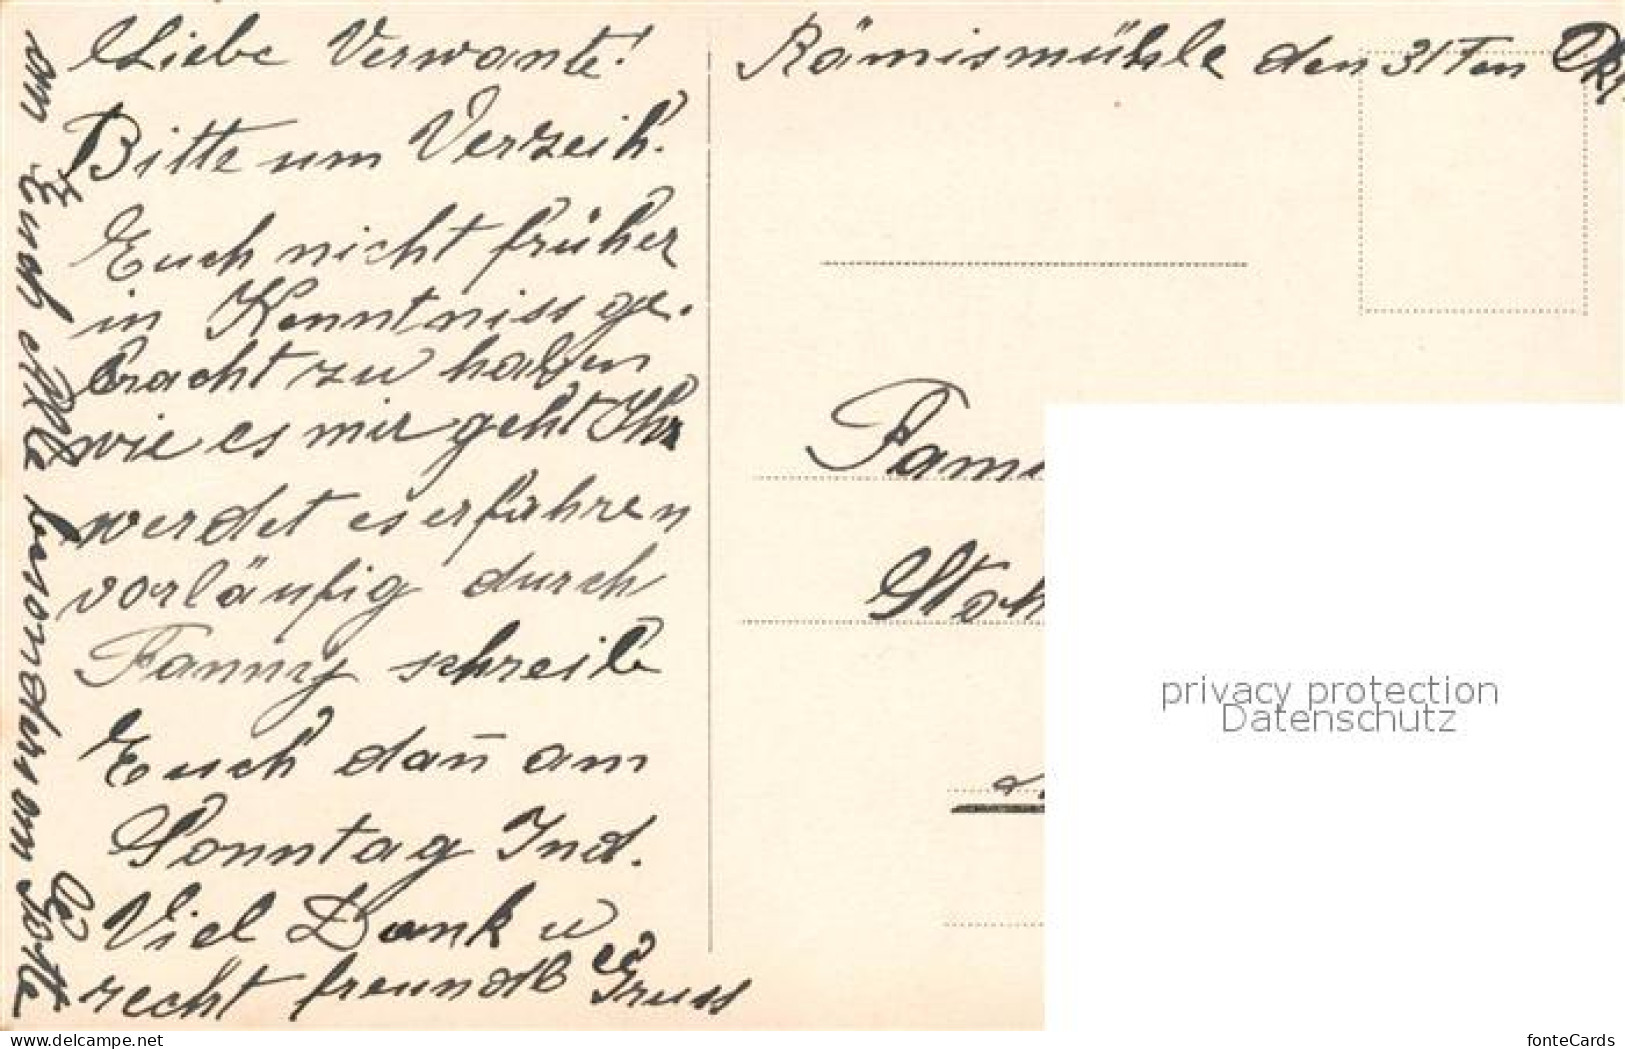 Rämismühle den 31ten Okt.
Liebe Verwante!
Bitte um Verzeih.
Euch nicht früher
in Kenntniss ge.
bracht zu haben
wie es mir geht Ihr
werdet es erfahren
vorläufig durch
Fanny schreib
Euch dañ am
Sonntag Ind.
Viel Dank u
recht freundlb Gruss
an Euch Alle besonders
Fami
Stoh
privacy protection
Datenschutz
www.delcampe.net
fonteCards